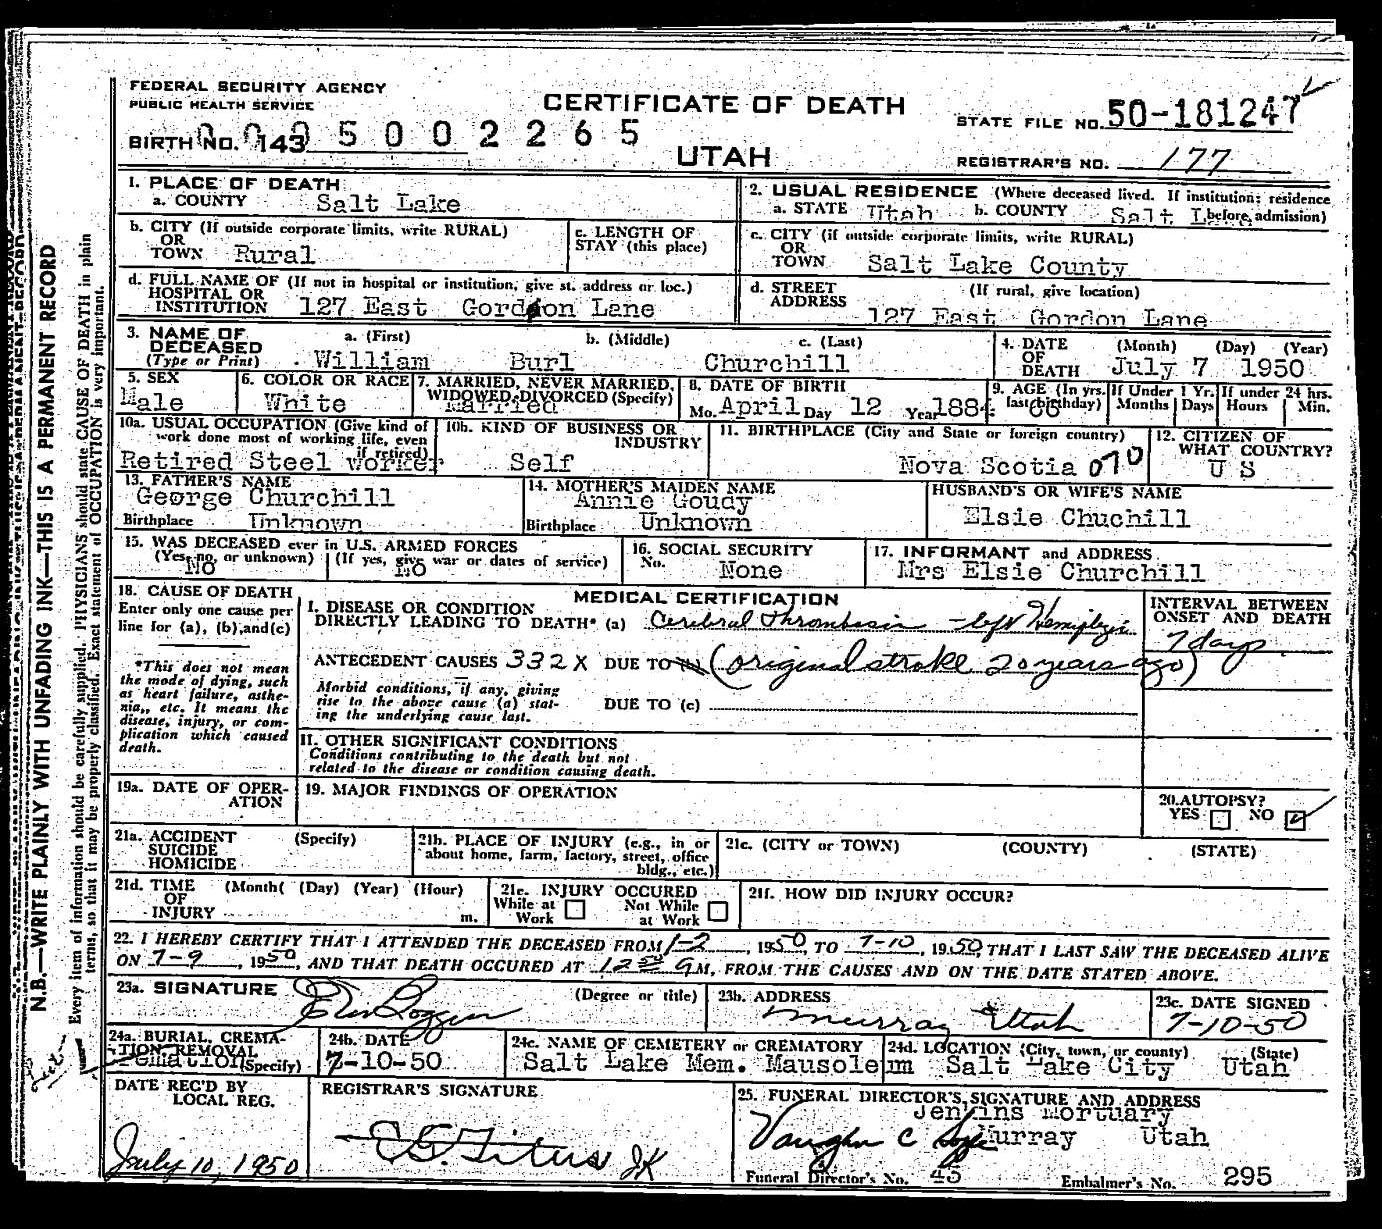 FEDERAL SECURITY AGENCY
PUBLIC HEALTH SERVICE
CERTIFICATE OF DEATH
STATE FILE NO. 50-181247
BIRTH NO. 143 5 0 0 2 2 6 5
UTAH
REGISTRAR'S NO. 177
1. PLACE OF DEATH
a. COUNTY Salt Lake
2. USUAL RESIDENCE (Where deceased lived. If institution: residence before admission)
a. STATE Utah b. COUNTY Salt
b. CITY (If outside corporate limits, write RURAL)
OR
TOWN Rural
c. LENGTH OF
STAY (this place)
c. CITY (if outside corporate limits, write RURAL)
OR
TOWN Salt Lake County
d. FULL NAME OF (If not in hospital or institution, give st. address or loc.)
HOSPITAL OR
INSTITUTION 127 East Gordon Lane
d. STREET (If rural, give location)
ADDRESS
127 East Gordon Lane
3. NAME OF
DECEASED
(Type or Print)
a. (First) b. (Middle) c. (Last)
William Burl Churchill
4. DATE (Month) (Day) (Year)
OF
DEATH July 7 1950
5. SEX
Male
6. COLOR OR RACE
White
7. MARRIED, NEVER MARRIED,
WIDOWED, DIVORCED (Specify)
Married
8. DATE OF BIRTH
Mo. April Day 12 Year 1884
9. AGE (In yrs. last birthday) 66
If Under 1 Yr. If under 24 hrs.
Months Days Hours Min.
10a. USUAL OCCUPATION (Give kind of
work done most of working life, even
if retired)
Retired Steel Worker
10b. KIND OF BUSINESS OR
INDUSTRY
Self
11. BIRTHPLACE (City and State or foreign country)
Nova Scotia 070
12. CITIZEN OF
WHAT COUNTRY?
U S
13. FATHER'S NAME
George Churchill
Birthplace Unknown
14. MOTHER'S MAIDEN NAME
Annie Goudy
Birthplace Unknown
HUSBAND'S OR WIFE'S NAME
Elsie Chuchill
15. WAS DECEASED ever in U.S. ARMED FORCES
(Yes, no, or unknown) (If yes, give war or dates of service)
No No
16. SOCIAL SECURITY
No. None
17. INFORMANT and ADDRESS
Mrs Elsie Churchill
18. CAUSE OF DEATH
Enter only one cause per
line for (a), (b), and (c)
*This does not mean
the mode of dying, such
as heart failure, asthe-
nia,, etc. It means the
disease, injury, or com-
plication which caused
death.
MEDICAL CERTIFICATION
I. DISEASE OR CONDITION
DIRECTLY LEADING TO DEATH* (a) Cerebral Thrombosis - left Hemiplegia
ANTECEDENT CAUSES 332X DUE TO (b) (original stroke 20 years ago)
Morbid conditions, if any, giving
rise to the above cause (a) stat-
ing the underlying cause last.
DUE TO (c)
INTERVAL BETWEEN
ONSET AND DEATH
7 days
II. OTHER SIGNIFICANT CONDITIONS
Conditions contributing to the death but not
related to the disease or condition causing death.
19a. DATE OF OPER-
ATION
19. MAJOR FINDINGS OF OPERATION
20. AUTOPSY?
YES NO
21a. ACCIDENT (Specify)
SUICIDE
HOMICIDE
21b. PLACE OF INJURY (e.g., in or
about home, farm, factory, street, office
bldg., etc.)
21c. (CITY or TOWN) (COUNTY) (STATE)
21d. TIME (Month( (Day) (Year) (Hour)
OF
INJURY m.
21e. INJURY OCCURED
While at Not While
Work at Work
21f. HOW DID INJURY OCCUR?
22. I HEREBY CERTIFY THAT I ATTENDED THE DECEASED FROM 1-2, 1950, TO 7-10, 1950, THAT I LAST SAW THE DECEASED ALIVE
ON 7-9, 1950, AND THAT DEATH OCCURED AT M., FROM THE CAUSES AND ON THE DATE STATED ABOVE.
23a. SIGNATURE (Degree or title)
23b. ADDRESS
Murray Utah
23c. DATE SIGNED
7-10-50
24a. BURIAL, CREMA-
TION, REMOVAL
(Specify)
Cremation
24b. DATE
7-10-50
24c. NAME OF CEMETERY or CREMATORY
Salt Lake Mem. Mausoleum
24d. LOCATION (City, town, or county) (State)
Salt Lake City Utah
DATE REC'D BY
LOCAL REG.
July 10, 1950
REGISTRAR'S SIGNATURE
25. FUNERAL DIRECTOR'S SIGNATURE AND ADDRESS
Jenkins Mortuary
Vaughn C Murray Utah
Funeral Director's No. 45 Embalmer's No. 295
N.B.—WRITE PLAINLY WITH UNFADING INK—THIS IS A PERMANENT RECORD
Every item of information should be carefully supplied. PHYSICIANS should state CAUSE OF DEATH in plain
terms, so that it may be properly classified. Exact statement of OCCUPATION is very important.